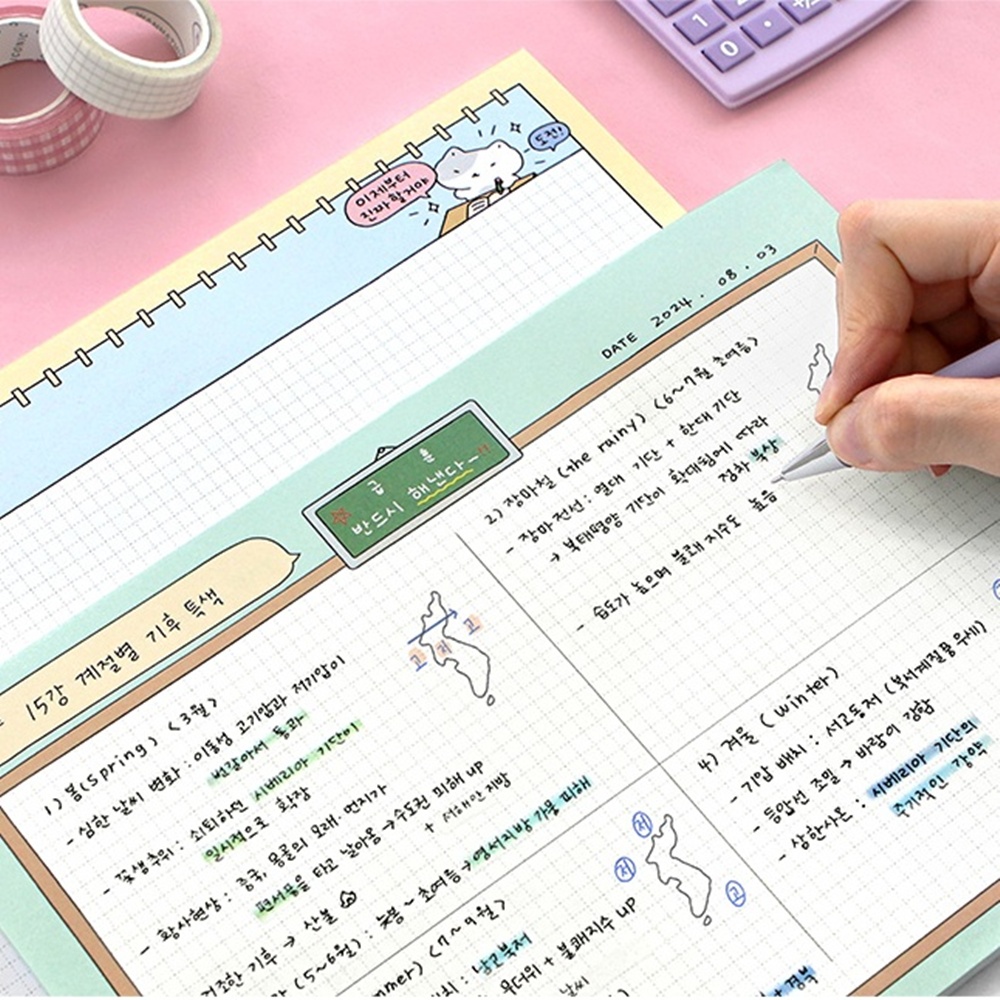 1
0
이제부터
진짜 할거야
도전!
DATE 2024. 08. 03
금 흘
반드시 해낸다ー!!
15강 계절별 기후 특색
1) 봄(spring) (3월)
- 심한 날씨 변화 : 이동성 고기압과 저기압이
번갈아서 통과
- 꽃샘추위 : 쇠퇴하던 시베리아 기단이
일시적으로 확장
- 황사현상 : 중국, 몽골의 모래·먼지가
편서풍을 타고 날아옴 → 수도권 피해 up
+ 서해안 지방
건조한 기후 → 산불
(5~6월) : 늦봄 ~ 초여름 → 영서지방 가뭄 피해
고 저 고
mmer) (7~9월)
치 : 남고북저
무더위 + 불쾌지수 up
날씨
저
저
고
2) 장마철 (the rainy) (6~7월 초여름)
- 장마전선 : 열대 기단 + 한대 기단
→ 북태평양 기단이 확대됨에 따라
점차 북상
- 습도가 높으며 불쾌 지수도 높음
4) 겨울 (winter)
- 기압 배치 : 서고동저 (북서계절풍우세)
- 등압선 조밀 → 바람이 강함
- 삼한사온 : 시베리아 기단의
주기적인 강약
+ 경북